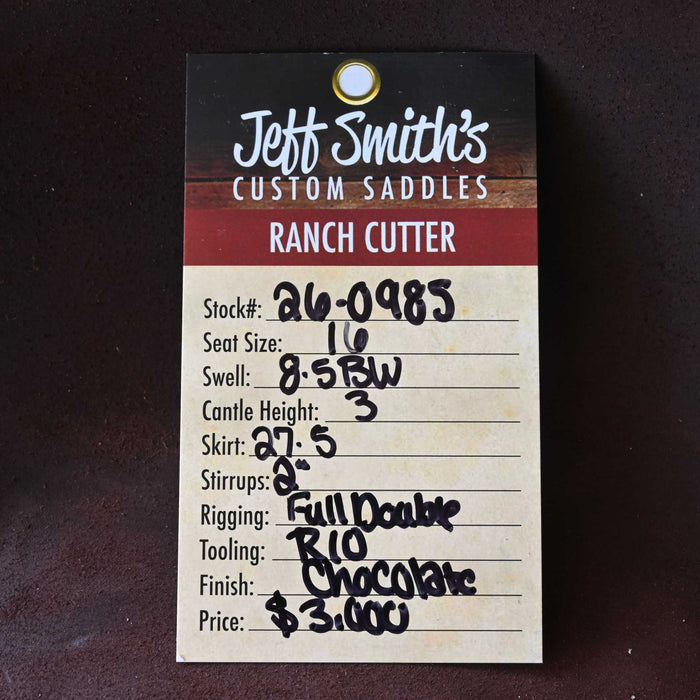 Jeff Smith's
CUSTOM SADDLES
RANCH CUTTER
Stock#: 26-0985
Seat Size: 16
Swell: 8.5 BW
Cantle Height: 3
Skirt: 27.5
Stirrups: 2"
Rigging: Full Double
Tooling: R10
Finish: Chocolate
Price: $3,000